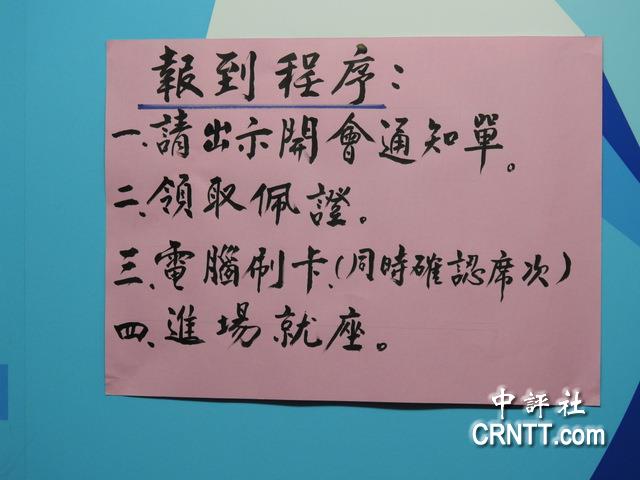 報到程序：
一、請出示開會通知單。
二、領取佩證。
三、電腦刷卡(同時確認席次)
四、進場就座。
中評社
CRNTT.com